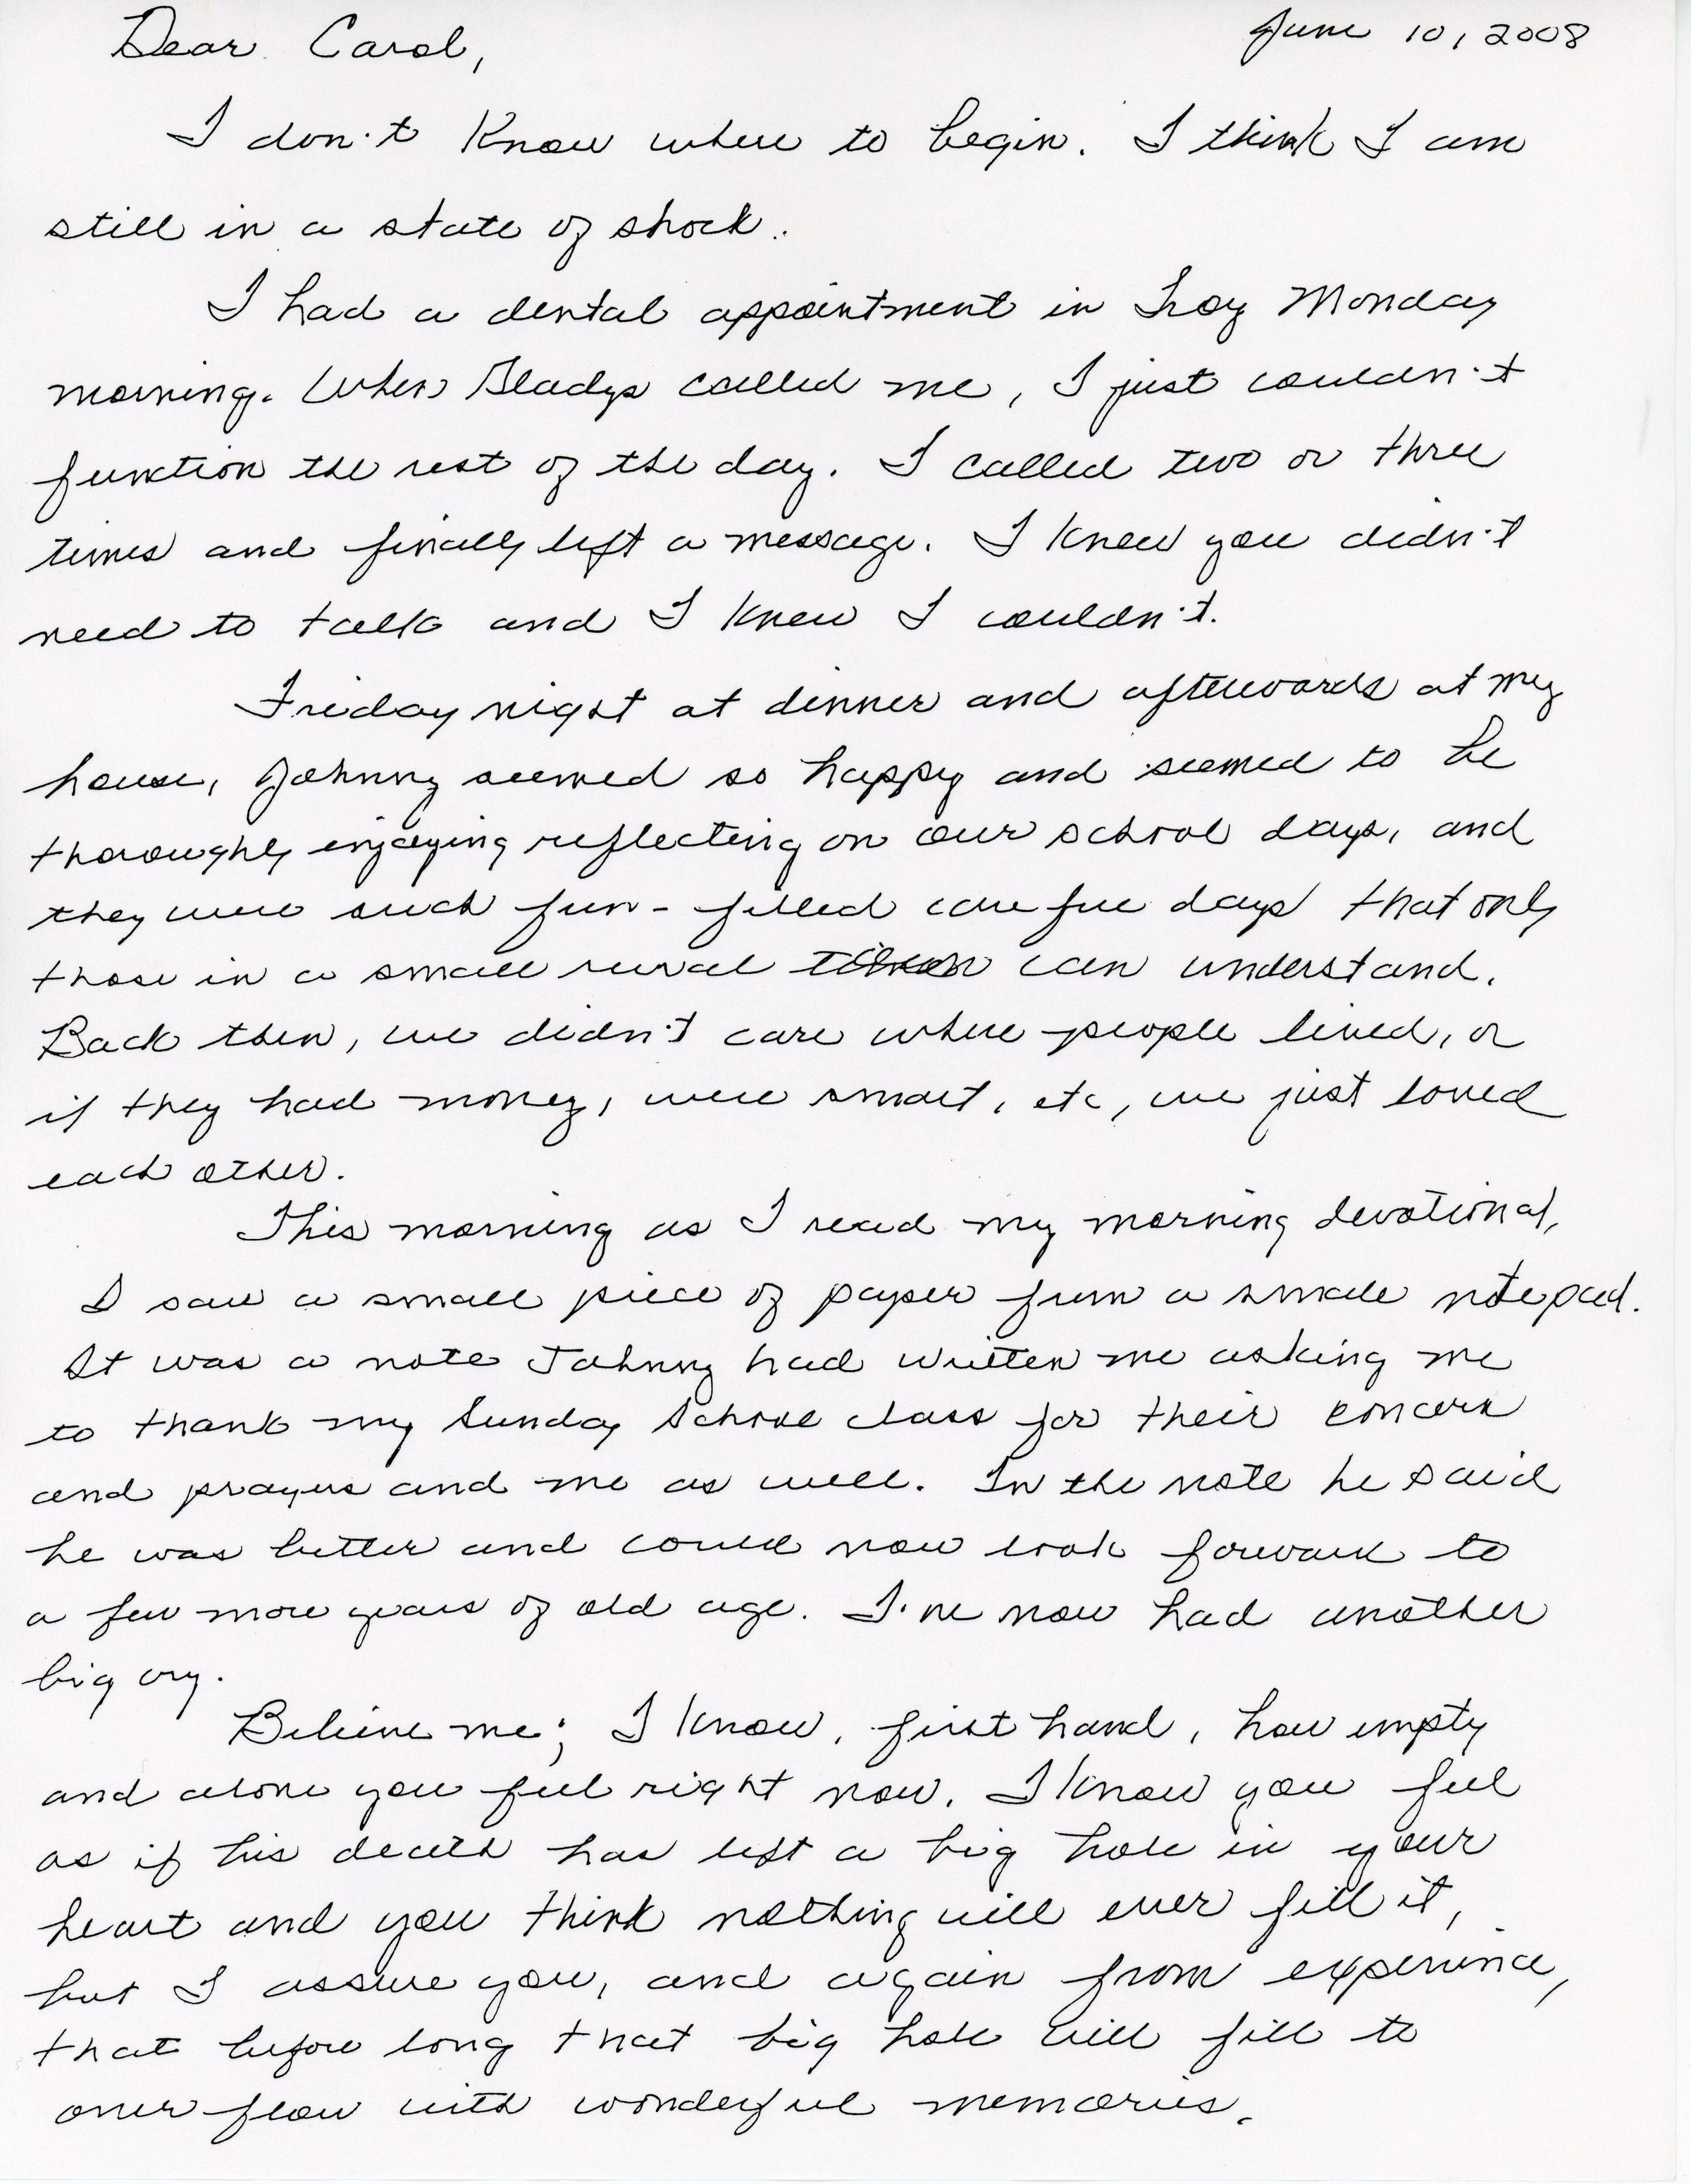 Dear Carol,
June 10, 2008
I don't know where to begin. I think I am
still in a state of shock.
I had a dental appointment in Troy Monday
morning. When Gladys called me, I just couldn't
function the rest of the day. I called two or three
times and finally left a message. I knew you didn't
need to talk and I knew I couldn't.
Friday night at dinner and afterwards at my
house, Johnny seemed so happy and seemed to be
thoroughly enjoying reflecting on our school days, and
they were such fun-filled care free days that only
those in a small rural can understand.
Back then, we didn't care where people lived, or
if they had money, were smart, etc, we just loved
each other.
This morning as I read my morning devotional,
I saw a small piece of paper from a small notepad.
It was a note Johnny had written me asking me
to thank my Sunday School class for their concern
and prayers and me as well. In the note he said
he was better and could now look forward to
a few more years of old age. I've now had another
big cry.
Believe me; I know, first hand, how empty
and alone you feel right now. I know you feel
as if his death has left a big hole in your
heart and you think nothing will ever fill it,
but I assure you, and again from experience,
that before long that big hole will fill to
over flow with wonderful memories.